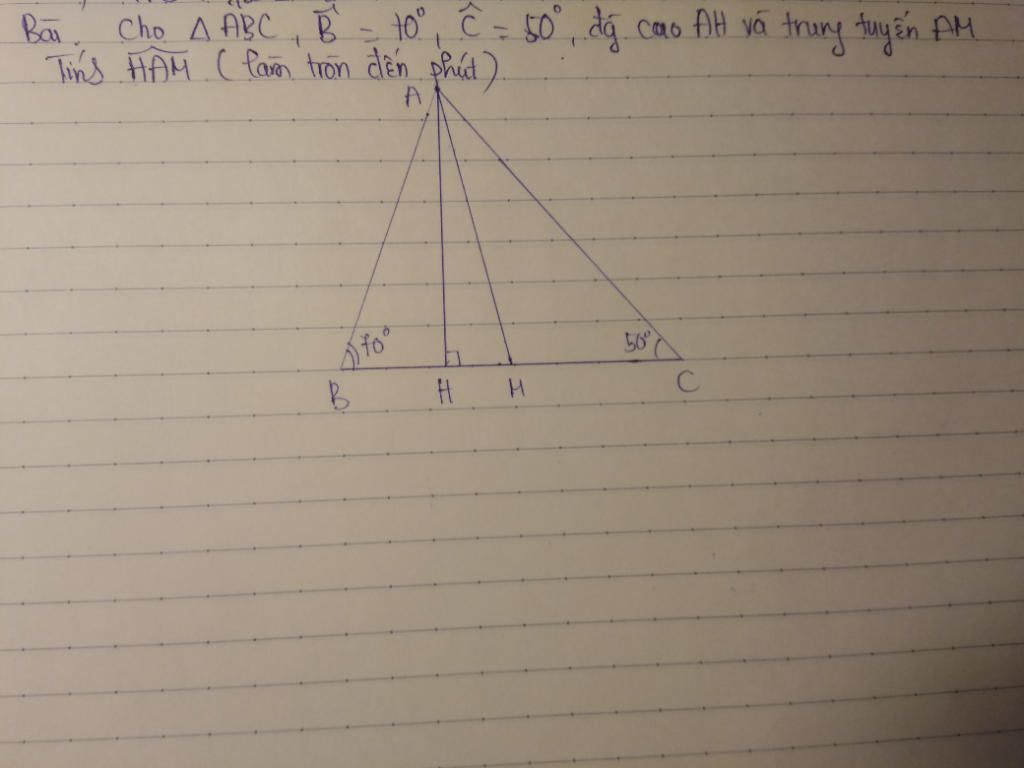 Bài. Cho △ABC, B̂ = 70°, Ĉ = 50°, đg cao AH và trung tuyến AM
Tính HAM (làm tròn đến phút)
A
70°
50°
B H M C